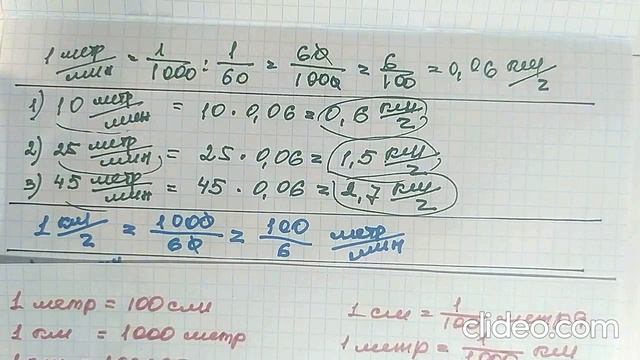 1 метр/мин = 1/1000 : 1/60 = 60/1000 = 6/100 = 0,06 км/г
1) 10 метр/мин = 10 · 0,06 = 0,6 км/г
2) 25 метр/мин = 25 · 0,06 = 1,5 км/г
3) 45 метр/мин = 45 · 0,06 = 2,7 км/г
1 км/г = 1000/60 = 100/6 метр/мин
1 метр = 100 см
1 см = 1/100 метра
1 км = 1000 метр
1 метр = 1/1000 км
clideo.com